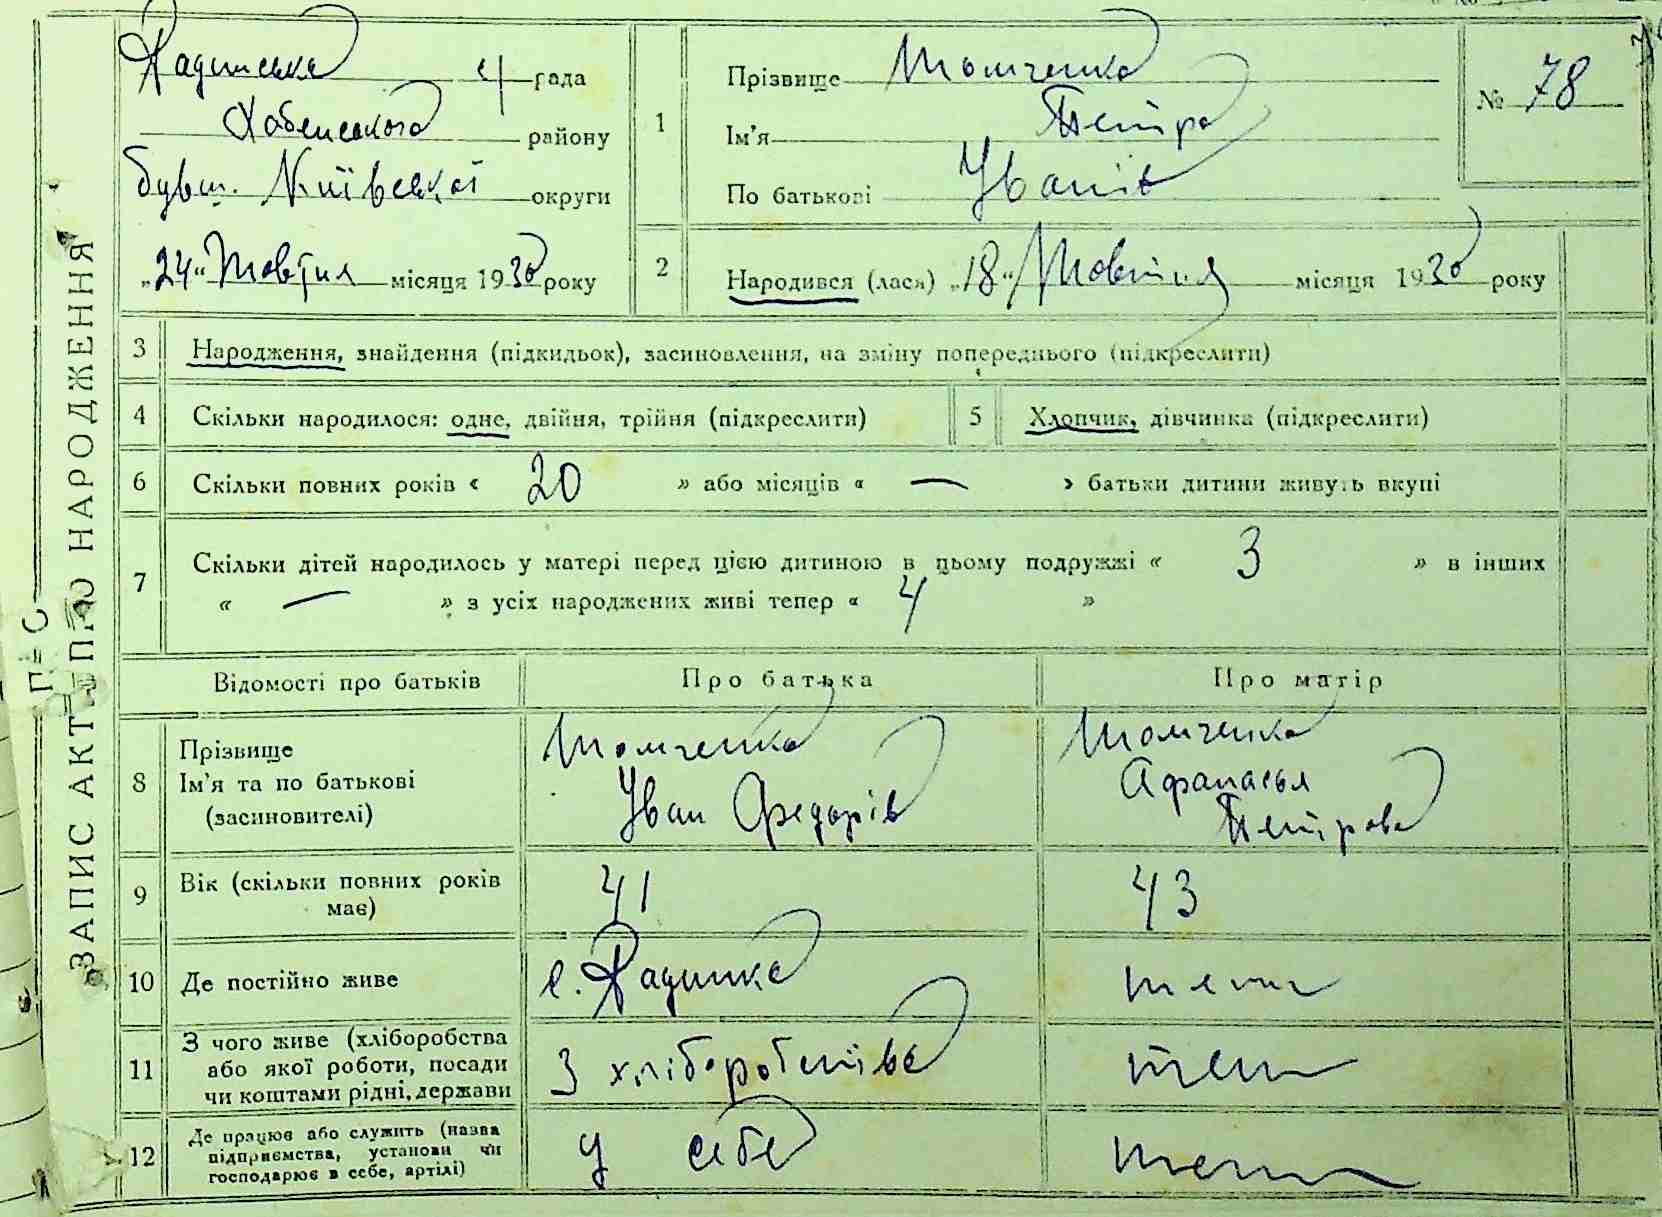 ЗАПИС АКТ ПРО НАРОДЖЕННЯ
Радинська с/рада
Хабенського району
бувш. Київської округи
„24“ Жовтня місяця 1930 року
1
Прізвище Томченко
Ім’я Петро
По батькові Іванів
№ 78
2
Народився (лася) „18“ Жовтня місяця 1930 року
3 Народження, знайдення (підкидьок), засиновлення, на зміну попереднього (підкреслити)
4 Скільки народилося: одне, двійня, трійня (підкреслити) 5 Хлопчик, дівчинка (підкреслити)
6 Скільки повних років « 20 » або місяців « — » батьки дитини живуть вкупі
7 Скільки дітей народилось у матері перед цією дитиною в цьому подружжі « 3 » в інших
« — » з усіх народжених живі тепер « 4 »
Відомості про батьків Про батька Про матір
8 Прізвище Томченко Томченко
Ім’я та по батькові Іван Федорів Афанасья
(засиновителі) Петрова
9 Вік (скільки повних років має) 41 43
10 Де постійно живе с. Радинка теж
11 З чого живе (хліборобства
або якої роботи, посади З хліборобства теж
чи коштами рідні, держави
12 Де працює або служить (назва
підприємства, установи чи у себе теж
господарює в себе, артілі)